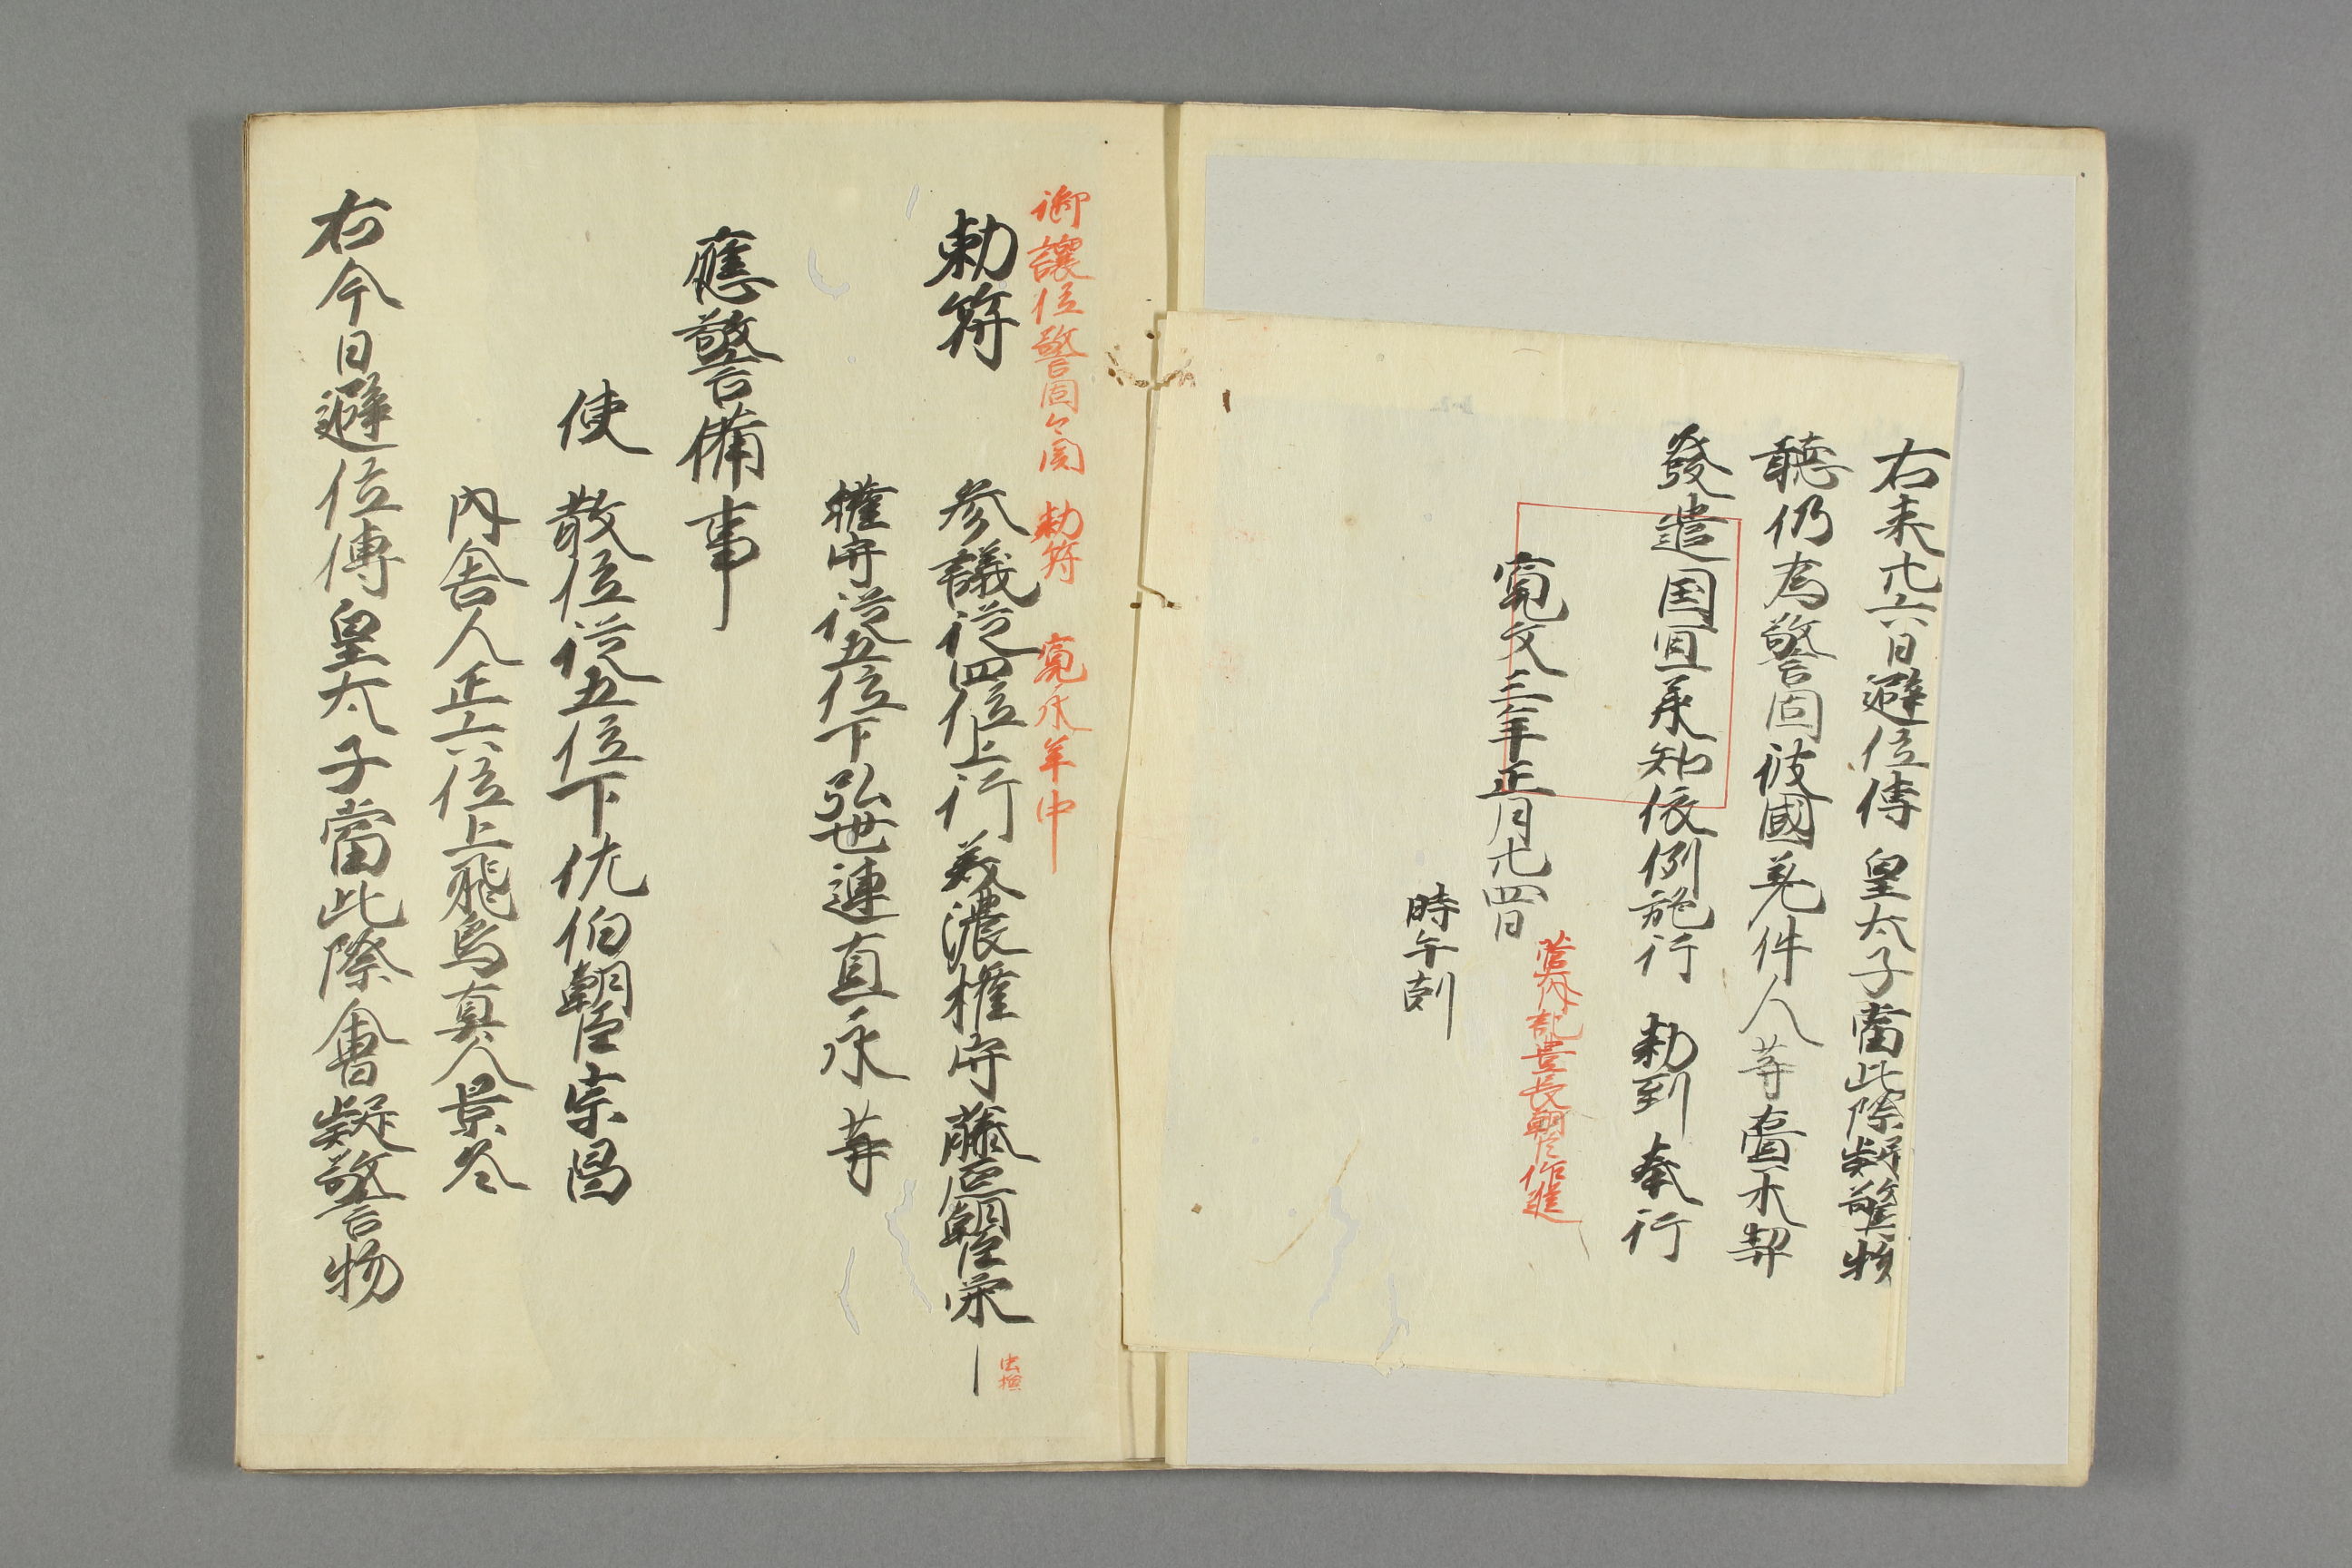 右来廿六日避位傳　皇太子當此際疑驚物
聴仍為警固彼國差件人等齎木契
發遣国宜承知依例施行　勅到奉行
寛文三年正月廿四日
内記豊長朝臣作進
時午剋
御讓位警固々関　勅符　寛永年中
勅符　参議従四位上行美濃権守藤原朝臣栄
権守従五位下弘世連直永等
應警備事
使　散位従五位下佐伯朝臣宗昌
内舎人正六位上飛鳥真人景
右今日避位傳皇太子當此際會疑警物